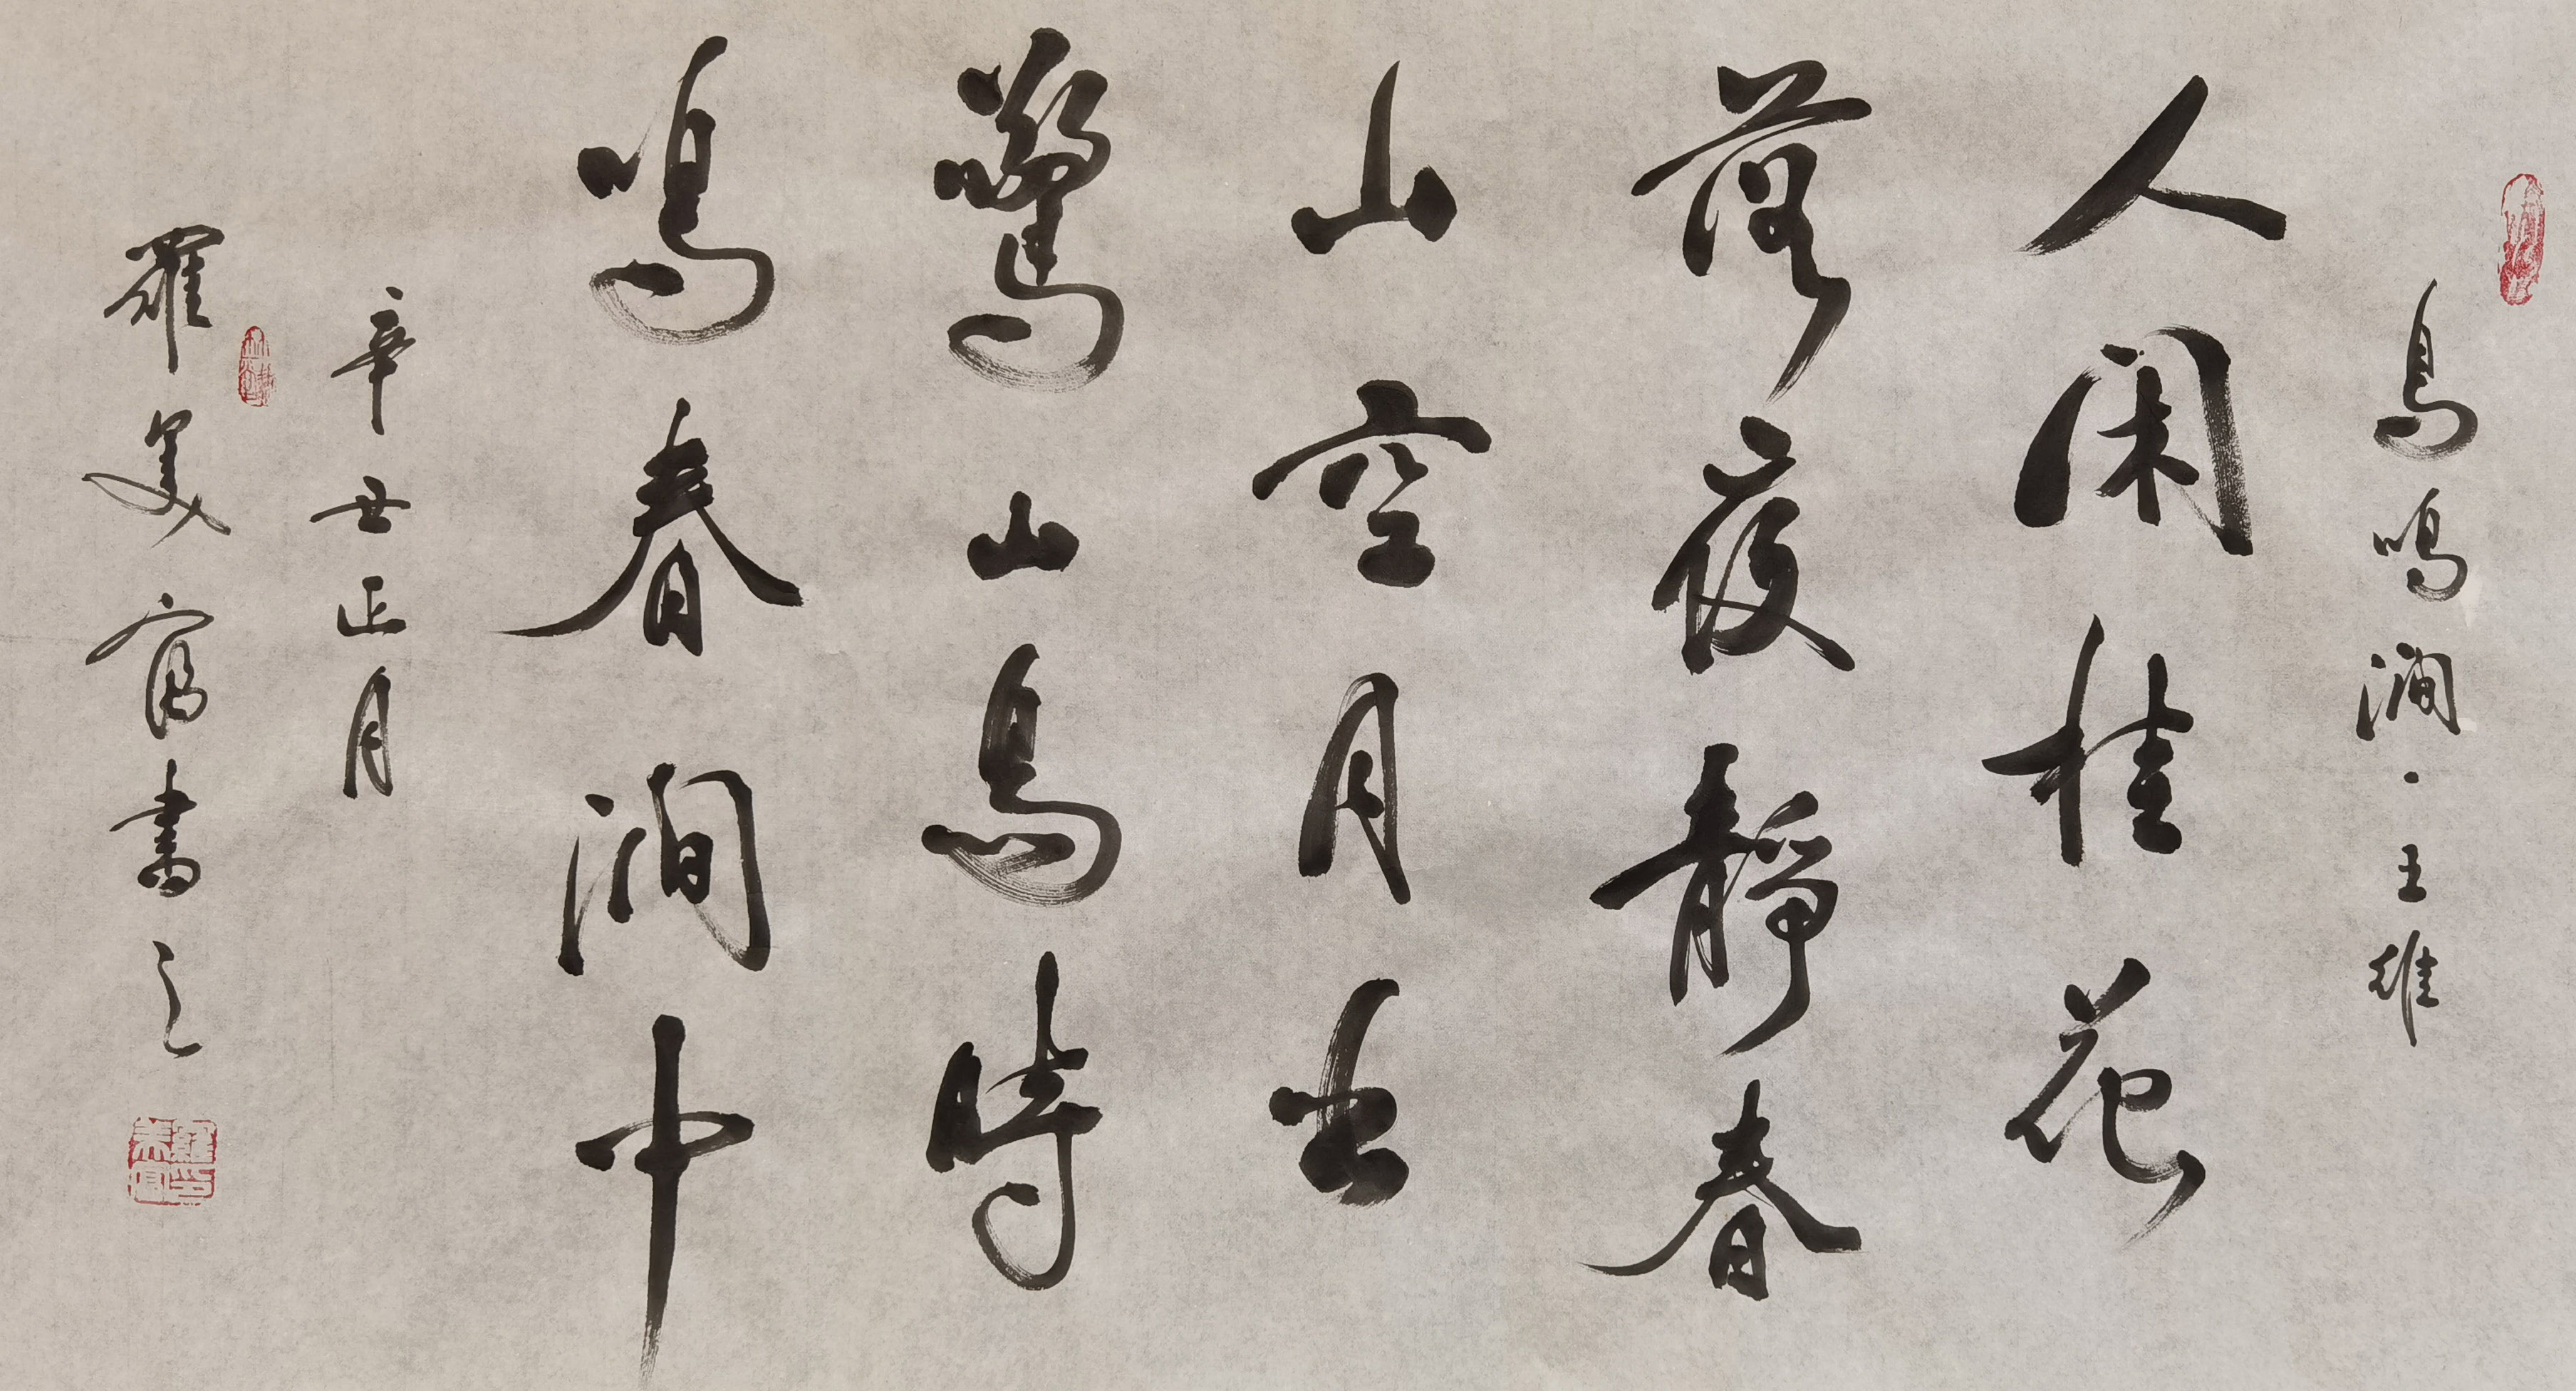 鳥鳴澗·王維
人閑桂花
落夜靜春
山空月出
驚山鳥時
鳴春澗中
辛丑正月
羅美富書之